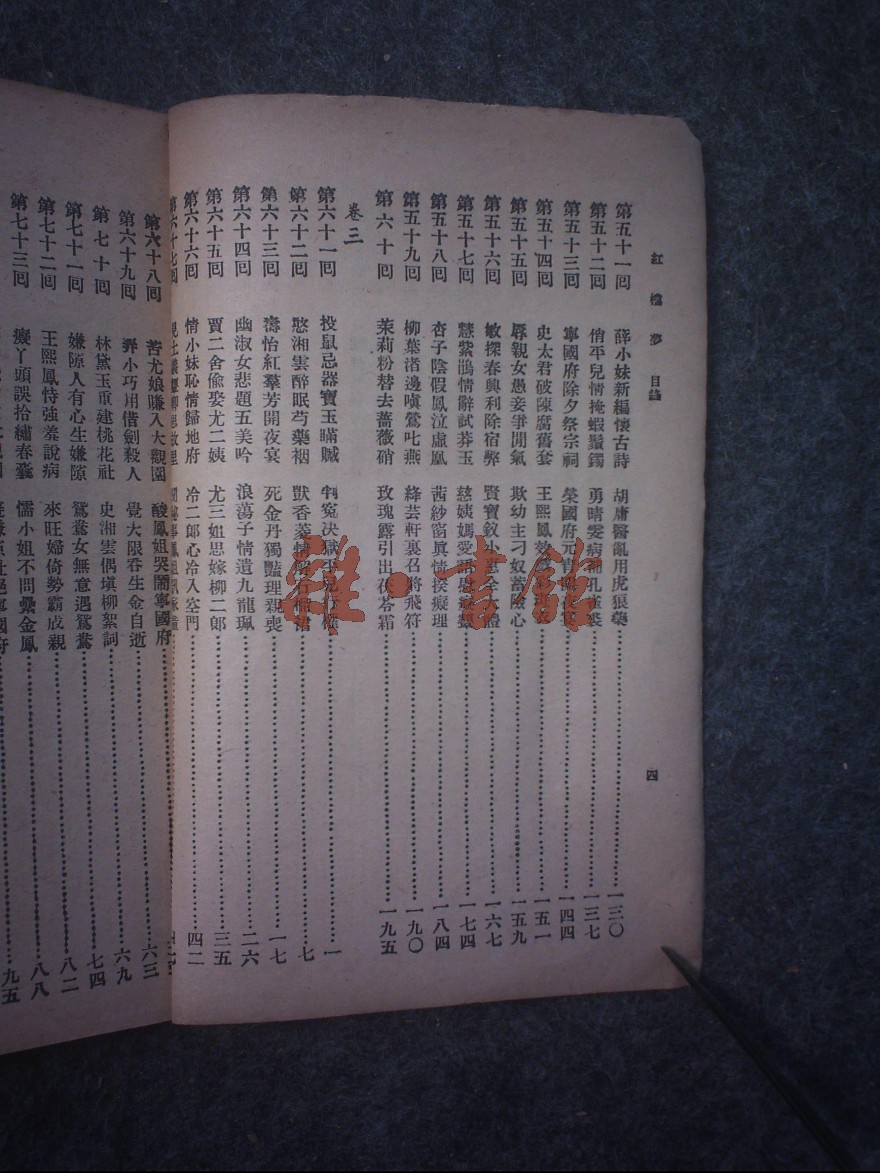 紅樓夢 目錄
四
第五十一回 薛小妹新編懷古詩 胡庸醫亂用虎狼藥 一三〇
第五十二回 俏平兒情掩蝦鬚鐲 勇晴雯病補孔雀裘 一三七
第五十三回 寧國府除夕祭宗祠 榮國府元宵開夜宴 一四四
第五十四回 史太君破陳腐舊套 王熙鳳效戲彩斑衣 一五一
第五十五回 辱親女愚妾爭閒氣 欺幼主刁奴蓄險心 一五九
第五十六回 敏探春興利除宿弊 賢寶釵小惠全大體 一六七
第五十七回 慧紫鵑情辭試莽玉 慈姨媽愛語慰癡顰 一七四
第五十八回 杏子陰假鳳泣虛凰 茜紗窗真情揆癡理 一八四
第五十九回 柳葉渚邊嗔鶯叱燕 絳芸軒裏召將飛符 一九〇
第六十回 茉莉粉替去薔薇硝 玫瑰露引出茯苓霜 一九五
卷三
第六十一回 投鼠忌器寶玉瞞贓 判冤決獄平兒行權 一
第六十二回 憨湘雲醉眠芍藥裀 獃香菱情解石榴裙 七
第六十三回 壽怡紅羣芳開夜宴 死金丹獨豔理親喪 一七
第六十四回 幽淑女悲題五美吟 浪蕩子情遺九龍珮 二六
第六十五回 賈二舍偸娶尤二姨 尤三姐思嫁柳二郎 三五
第六十六回 情小妹恥情歸地府 冷二郎心冷入空門 四二
第六十七回
第六十八回 苦尤娘賺入大觀園 酸鳳姐哭鬧寧國府 六三
第六十九回 弄小巧用借劍殺人 覺大限吞生金自逝 六九
第七十回 林黛玉重建桃花社 史湘雲偶塡柳絮詞 七四
第七十一回 嫌隙人有心生嫌隙 鴛鴦女無意遇鴛鴦 八二
第七十二回 王熙鳳恃強羞說病 來旺婦倚勢霸成親 八八
第七十三回 癡丫頭誤拾繡春囊 懦小姐不問纍金鳳 九五
雜·書館